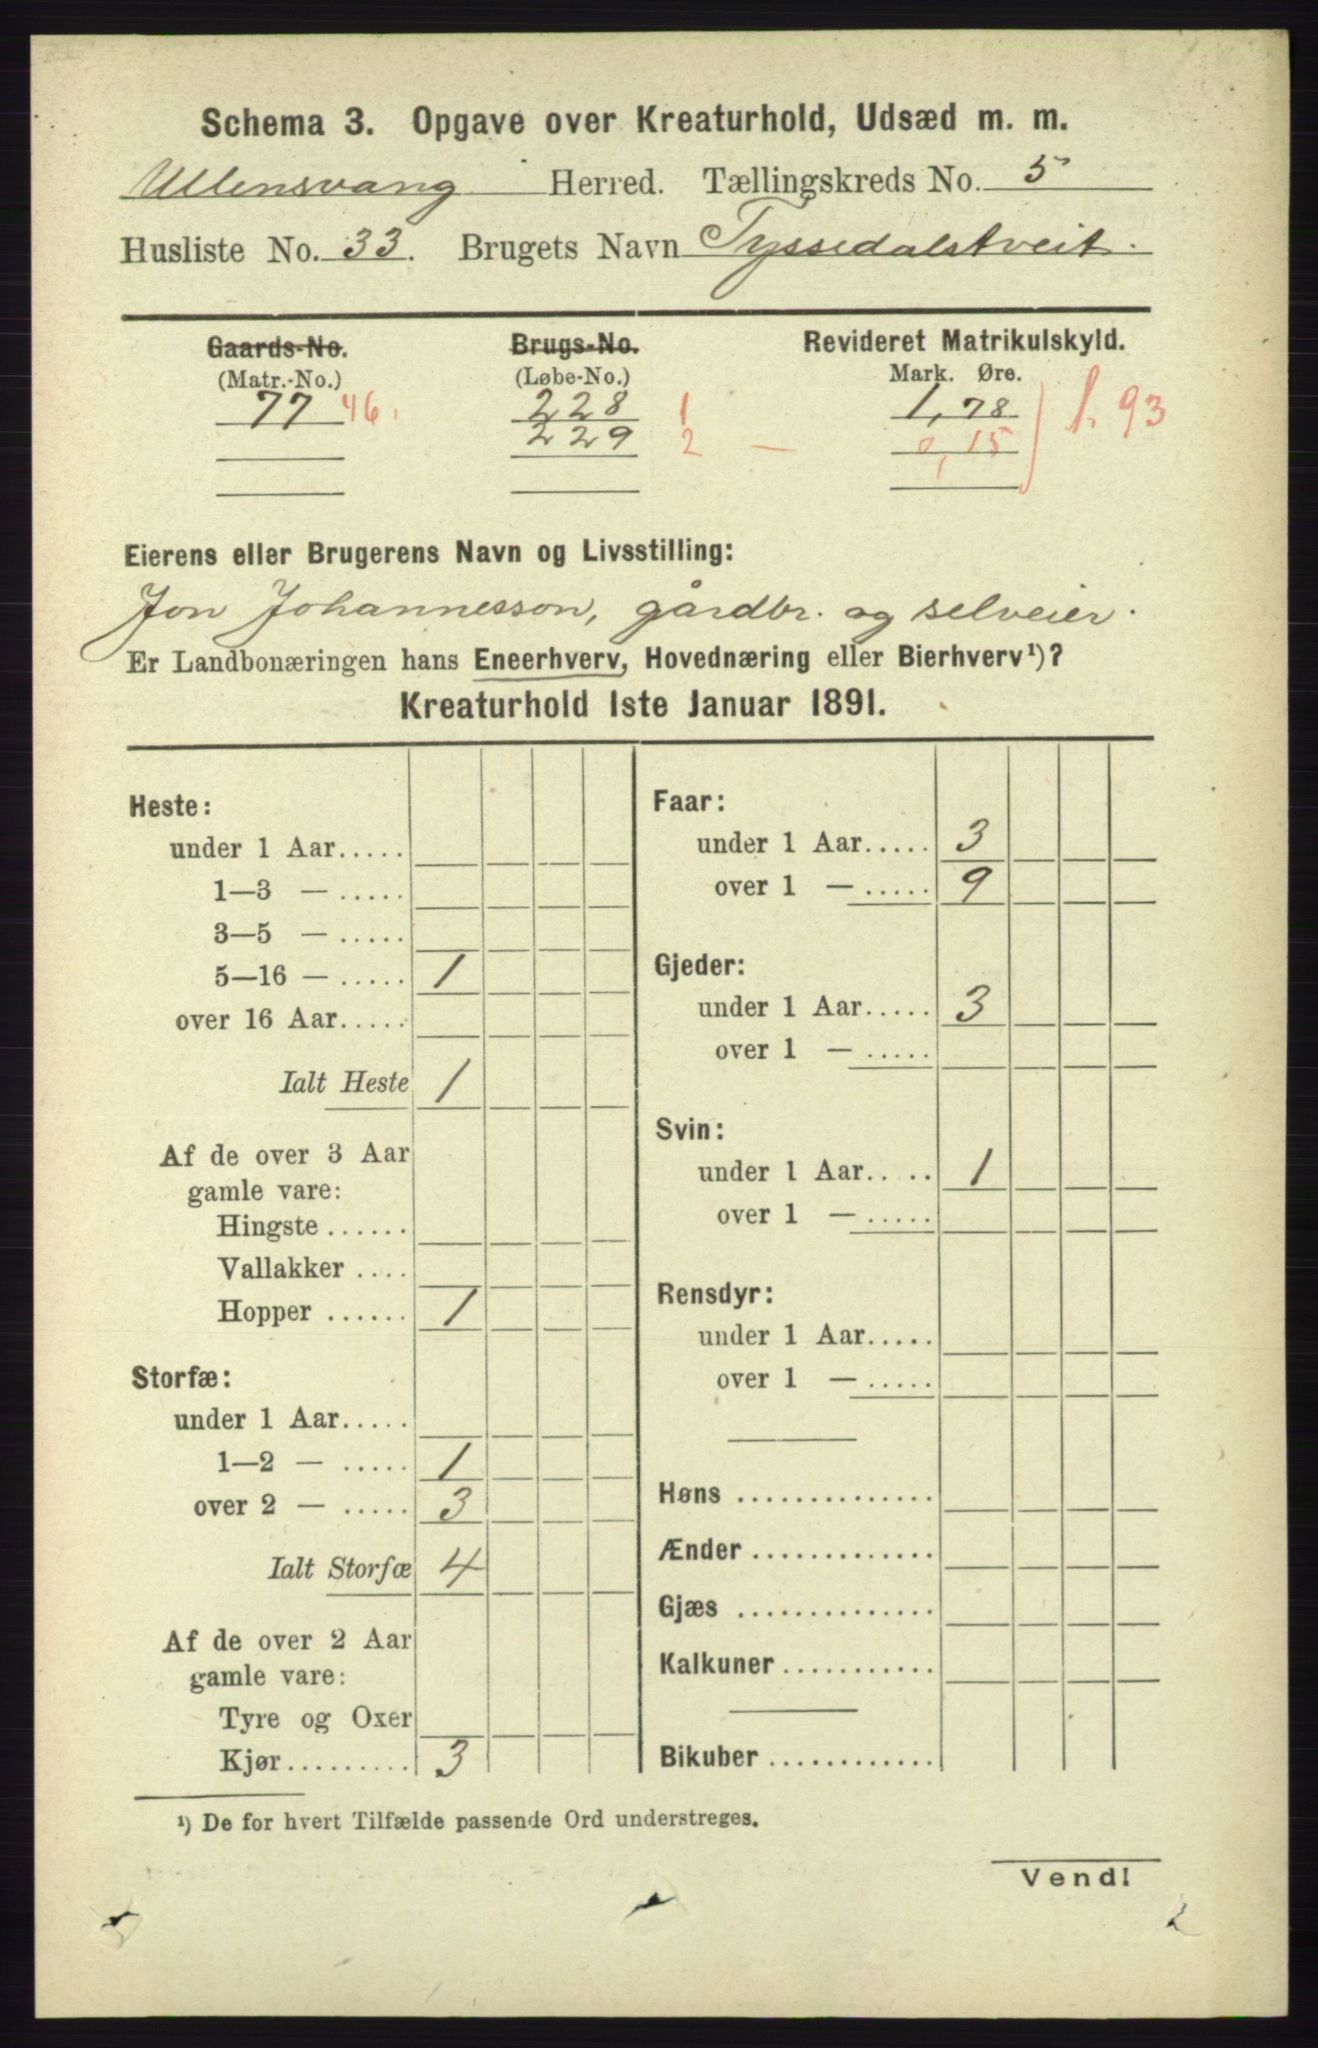 Schema 3. Opgave over Kreaturhold, Udsæd m. m.
Ullensvang Herred. Tællingskreds No. 5
Husliste No. 33. Brugets Navn Tyssedalstveit.
Gaards-No. Brugs-No. Revideret Matrikulskyld.
(Matr.-No.) (Løbe-No.) Mark. Øre.
77 46. 228 1 1,78
229 2 — 0,15 1.93
Eierens eller Brugerens Navn og Livsstilling:
Jon Johannesson, gårdbr. og selveier.
Er Landbonæringen hans Eneerhverv, Hovednæring eller Bierhverv¹)?
Kreaturhold 1ste Januar 1891.
Heste:
under 1 Aar.....
1—3 — .....
3—5 — .....
5—16 — ..... 1
over 16 Aar.....
Ialt Heste 1
Af de over 3 Aar
gamle vare:
Hingste ......
Vallakker ....
Hopper ...... 1
Storfæ:
under 1 Aar.....
1—2 — ..... 1
over 2 — ..... 3
Ialt Storfæ 4
Af de over 2 Aar
gamle vare:
Tyre og Oxer
Kjør......... 3
Faar:
under 1 Aar..... 3
over 1 — ..... 9
Gjeder:
under 1 Aar..... 3
over 1 — .....
Svin:
under 1 Aar..... 1
over 1 — .....
Rensdyr:
under 1 Aar.....
over 1 — .....
Høns ..............
Ænder .............
Gjæs ..............
Kalkuner ...........
Bikuber ............
¹) De for hvert Tilfælde passende Ord understreges.
Vend!
2